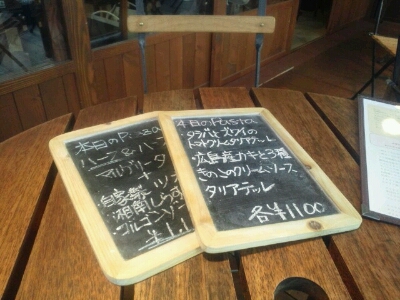 本日のPizza
ハーフ&ハ
マルゲリータ
+
自家製
湘南しらす
ゴルゴンゾ
本日のPasta
タラバとズワイの
トマトクリームタリアテッレ
広島産カキと3種
きのこのクリームソース
タリアテッレ
各¥1100